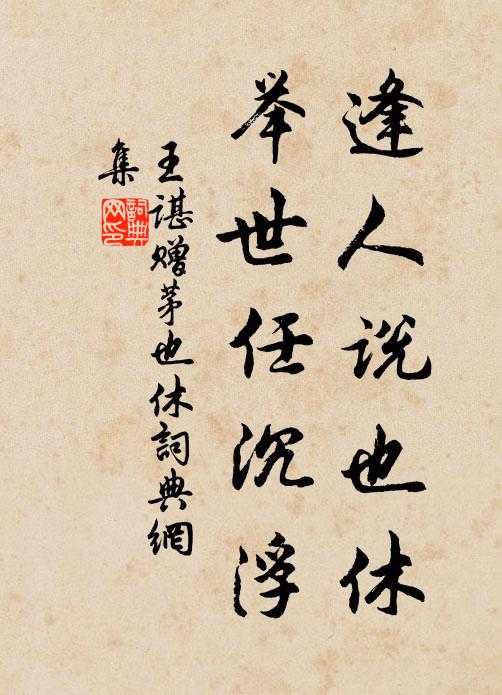 逢人说也休
举世任沉浮
王谌赠茅也休詞典網
集
詞典網印